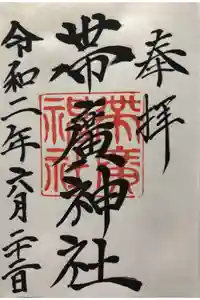 奉拝
帯廣神社
令和二年六月二十二日
帯廣神社